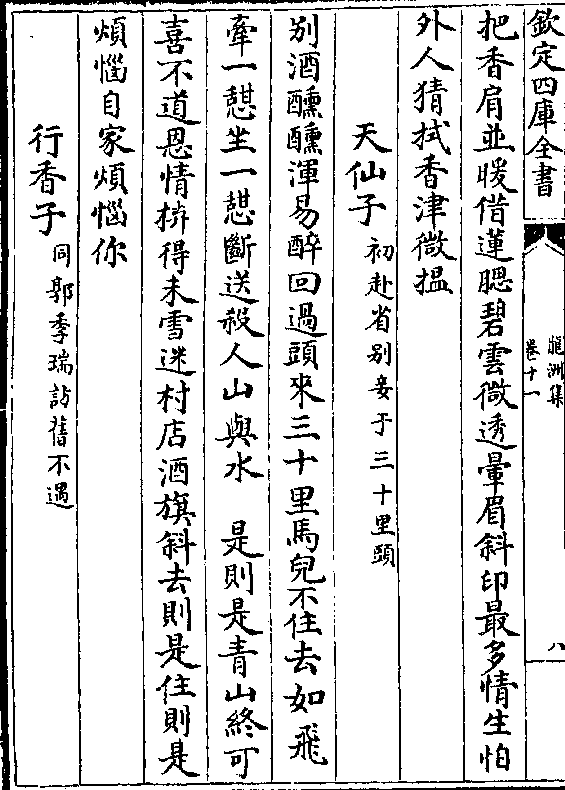 欽定四庫全書
龍洲集
卷十一
八
把香肩並暖借蓮腮碧雲微透暈眉斜印最多情生怕
外人猜拭香津微揾
天仙子 初赴省别妾于三十里頭
别酒醺醺渾易醉回過頭來三十里馬兒不住去如飛
牽一憇坐一憇斷送殺人山與水 是則是青山終可
喜不道恩情拚得未雪迷村店酒旗斜去則是住則是
煩惱自家煩惱你
行香子 同郭季瑞訪舊不遇